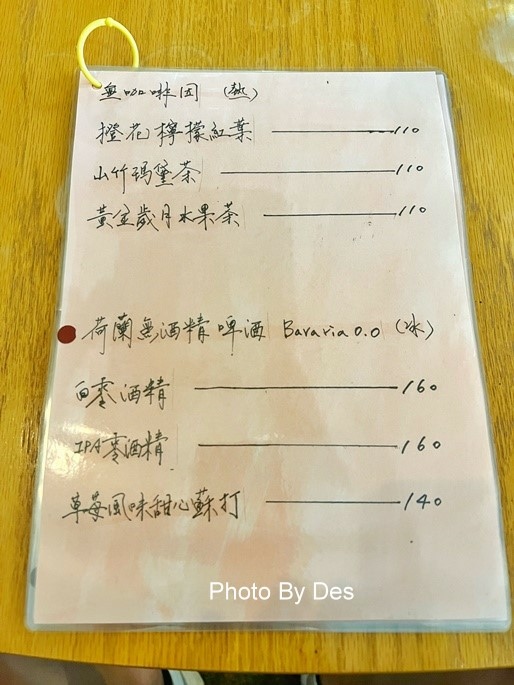 無咖啡因 (熱)
橙花檸檬紅葉 110
山竹瑪黛茶 110
黃金歲月水果茶 110
荷蘭無酒精啤酒 Bavaria 0.0 (冰)
白零酒精 160
IPA零酒精 160
草莓風味甜心蘇打 140
Photo By Des